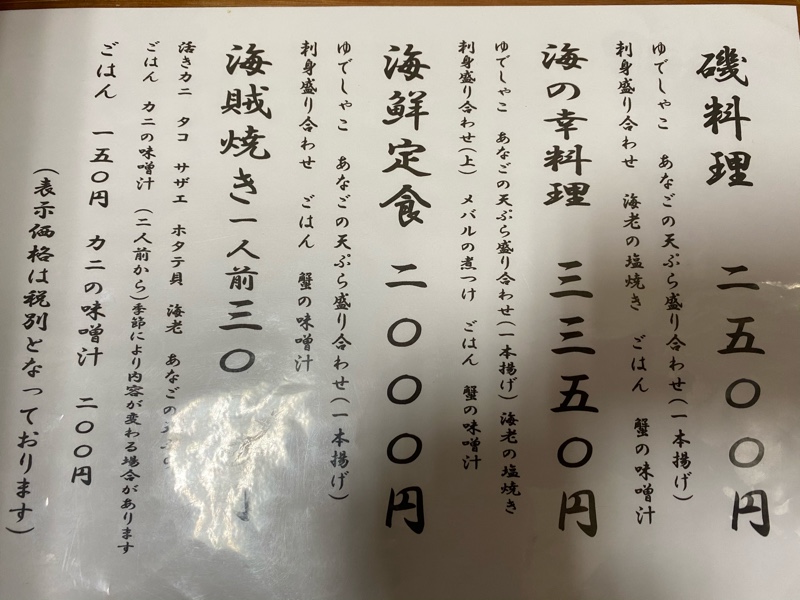 磯料理 二五〇〇円
ゆでしゃこ あなごの天ぷら盛り合わせ(一本揚げ)
刺身盛り合わせ 海老の塩焼き ごはん 蟹の味噌汁
海の幸料理 三三五〇円
ゆでしゃこ あなごの天ぷら盛り合わせ(一本揚げ) 海老の塩焼き
刺身盛り合わせ(上) メバルの煮つけ ごはん 蟹の味噌汁
海鮮定食 二〇〇〇円
ゆでしゃこ あなごの天ぷら盛り合わせ(一本揚げ)
刺身盛り合わせ ごはん 蟹の味噌汁
海賊焼き一人前 三〇
活きカニ タコ サザエ ホタテ貝 海老 あなごの
ごはん カニの味噌汁 (二人前から)季節により内容が変わる場合があります
ごはん 一五〇円 カニの味噌汁 二〇〇円
(表示価格は税別となっております)